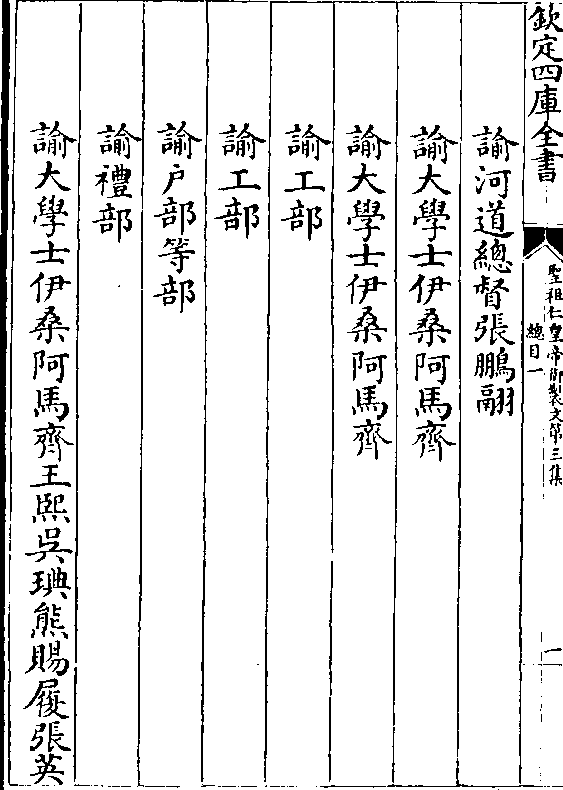 欽定四庫全書
聖祖仁皇帝御製文第三集
總目一
一
諭河道總督張鵬翮
諭大學士伊桑阿馬齊
諭大學士伊桑阿馬齊
諭工部
諭工部
諭户部等部
諭禮部
諭大學士伊桑阿馬齊王熙吳琠熊賜履張英